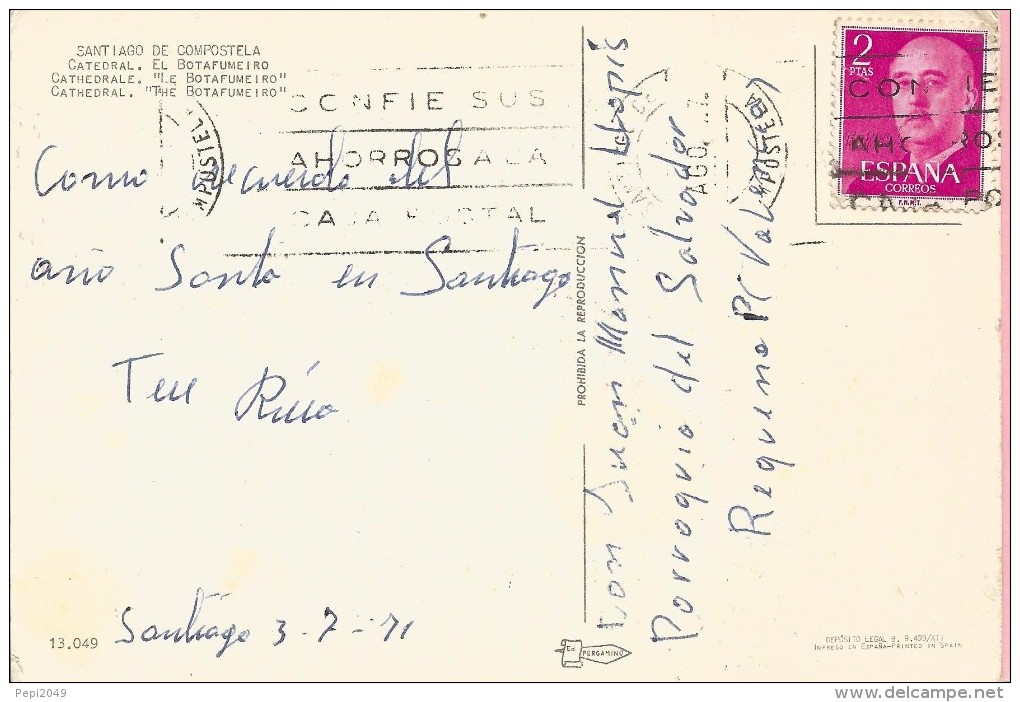 SANTIAGO DE COMPOSTELA
CATEDRAL. EL BOTAFUMEIRO
CATHEDRALE. "LE BOTAFUMEIRO"
CATHEDRAL. "THE BOTAFUMEIRO"
CONFIE SUS
AHORROS A LA
CAJA POSTAL
Como recuerdo del
año Santo en Santiago
Santiago 3-7-71
13.049
PROHIBIDA LA REPRODUCCION
Ed. PERGAMINO
Don Juan Manuel Llopis
Parroquia del Salvador
Requena P( Valencia)
AGO
MPOSTELA
2
PTAS
ESPAÑA
CORREOS
F.N.M.T.
CON
AHO
DEPÓSITO LEGAL B. 9.499/XI)
IMPRESO EN ESPAÑA-PRINTED IN SPAIN
Pepi2049
delcampe.net